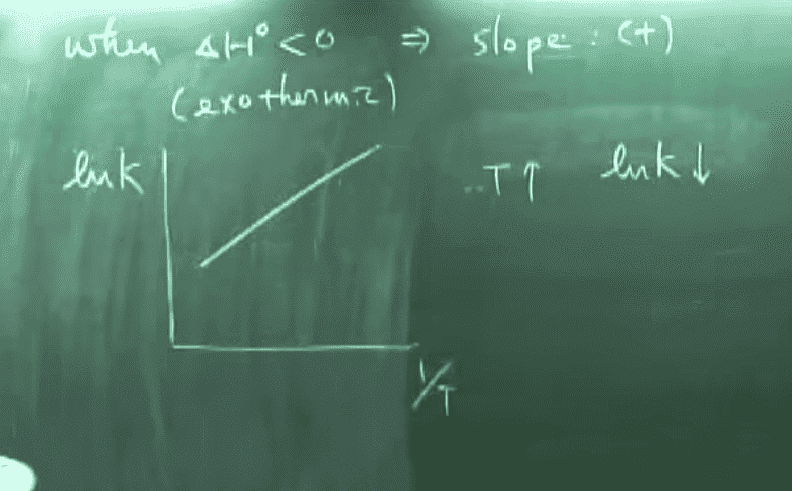 when ΔH° < 0 ⇒ slope : (+)
(exothermic)
lnk
..T↑ lnk↓
1/T